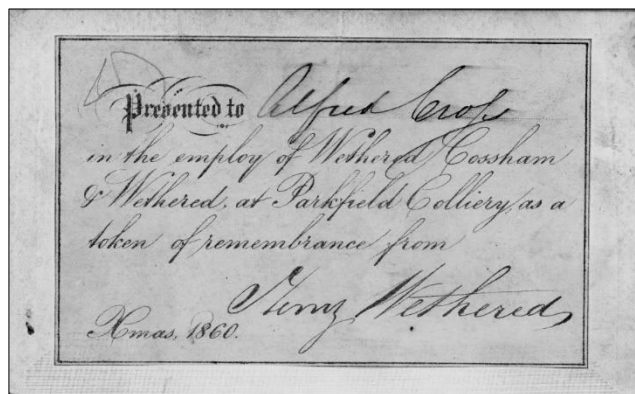 Presented to Alfred Cross
in the employ of Wethered Cossham
& Wethered, at Parkfield Colliery, as a
token of remembrance from
Henry Wethered
Xmas, 1860.